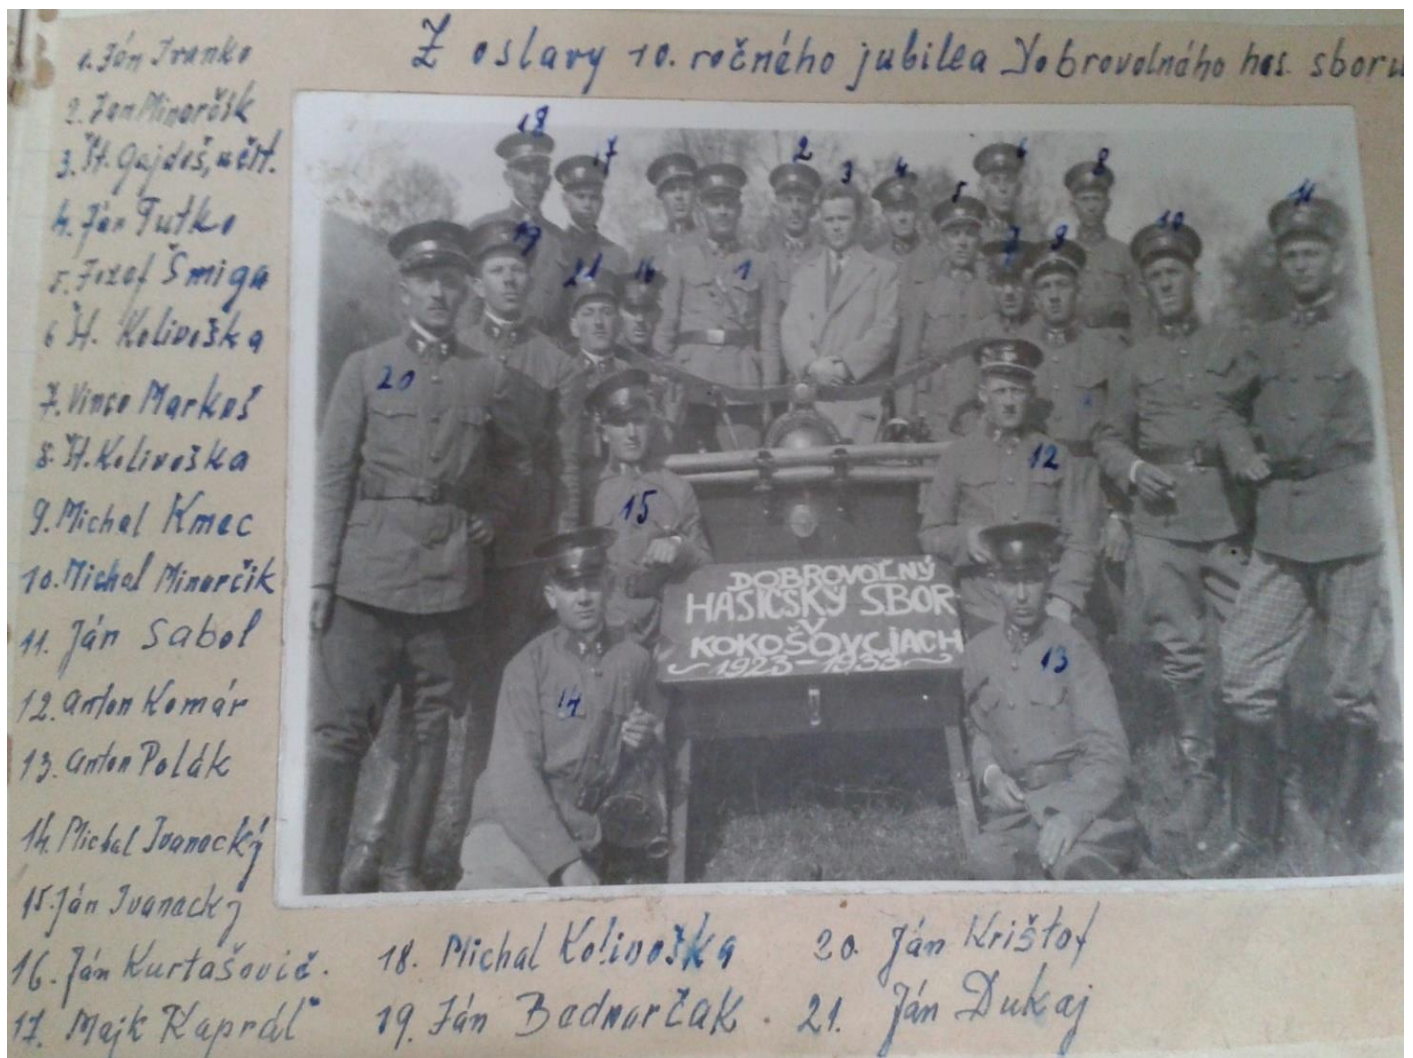 Z oslavy 10. ročného jubilea Dobrovolného has. sboru
1. Ján Ivanko
2. Jan Minarčik
3. Št. Gajdoš, učit.
4. Ján Tutko
5. Jozef Šmiga
6 Št. Kolivoška
7. Vinco Markoš
8. Št. Kolivoška
9. Michal Kmec
10. Michal Minarčik
11. Ján Sabol
12. Anton Komár
13. Anton Polák
14. Michal Ivanocký
15. Ján Ivanacký
16. Ján Kurtašovič.
17. Majk Kaprál
18. Michal Kolivoška
19. Ján Bednarčak.
20. Ján Krištof
21. Ján Dukaj
18
17
2
3
4
5
6
8
11
19
21
16
1
7
9
10
20
15
12
14
13
DOBROVOĽNÝ
HASIČSKÝ SBOR
V
KOKOŠOVCIACH
1923-1933